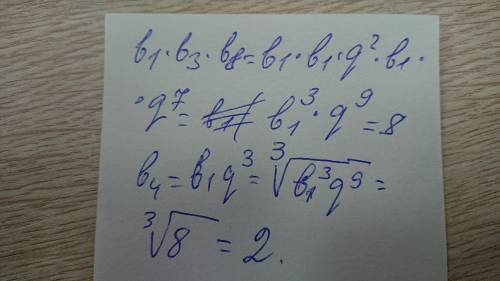 b₁·b₃·b₈=b₁·b₁·q²·b₁·
·q⁷= b₁³·q⁹=8
b₄=b₁q³=∛(b₁³q⁹)=
∛8=2.